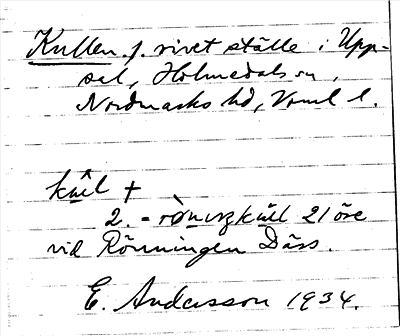 Kullen. f. rivet ställe i Upp-
sal, Holmedals sn,
Nordmarks hd, Vrml l.
kul +
2. = kull 21 öre
vid Rönningen Därs.
E. Andersson 1934.